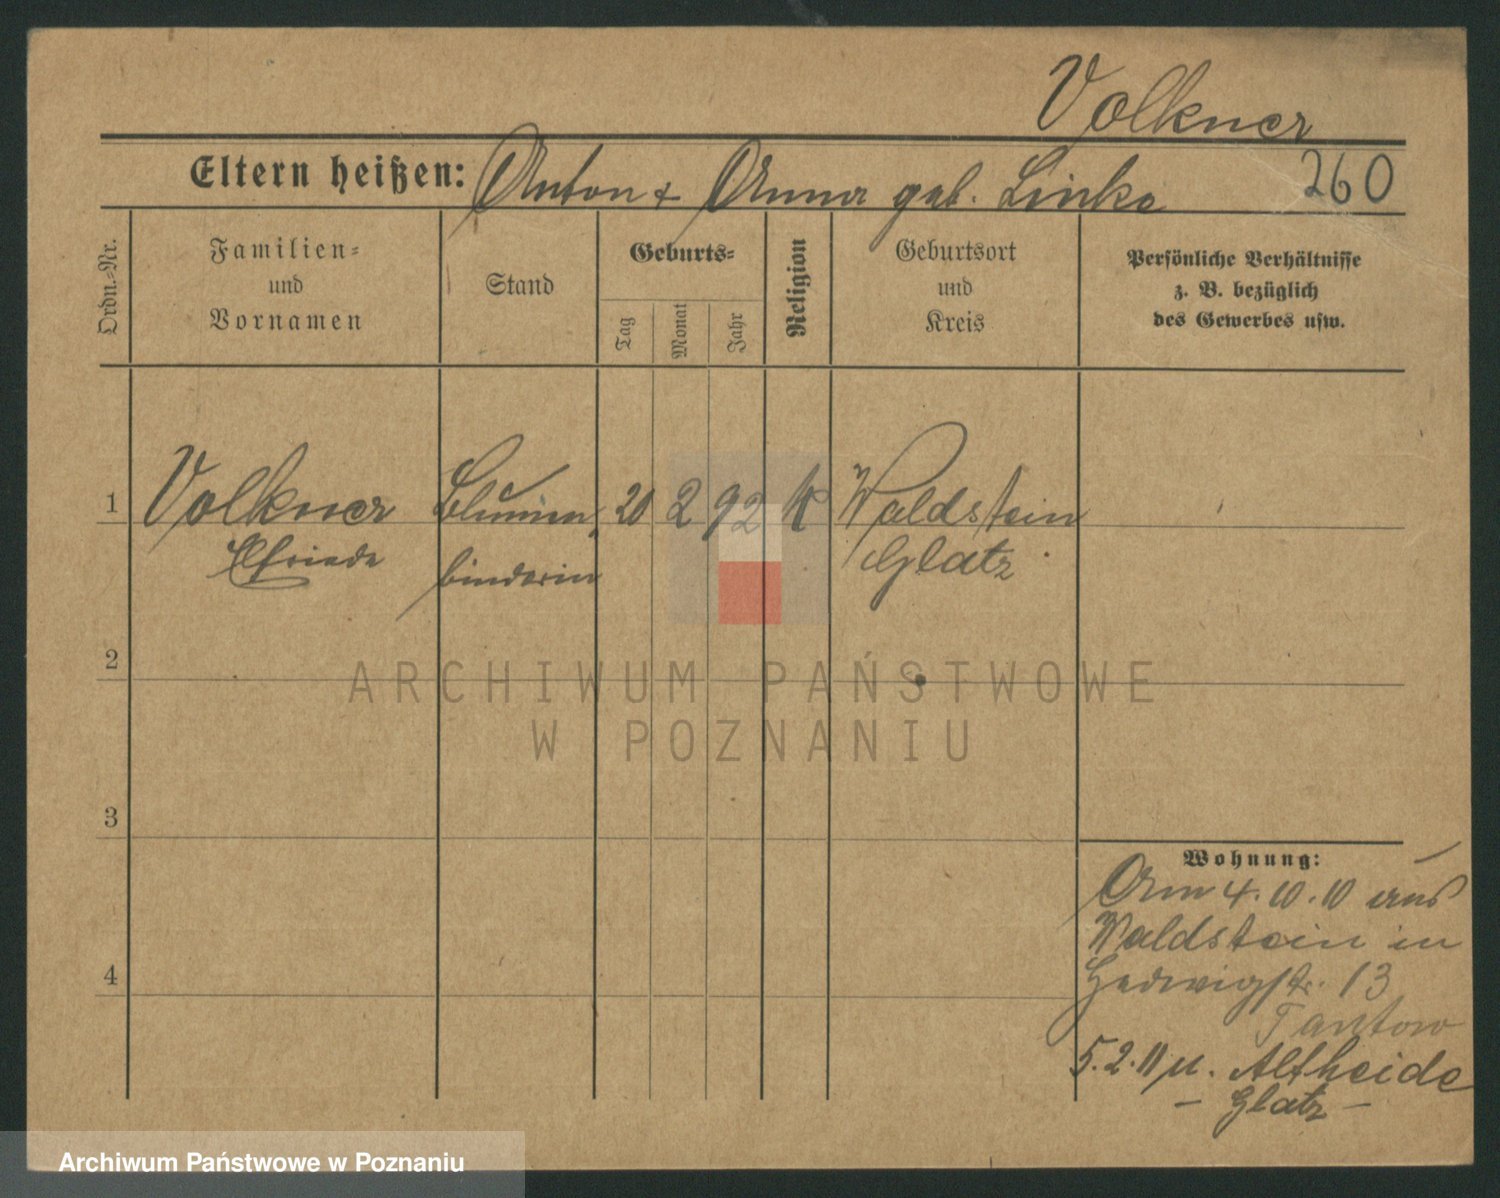 Volkner
Eltern heißen: Anton + Anna geb. Linke 260
Ordn.-Nr.
Familien-
und
Vornamen
Stand
Geburts-
Tag
Monat
Jahr
Religion
Geburtsort
und
Kreis
Persönliche Verhältnisse
z. B. bezüglich
des Gewerbes usw.
1 Volkner Blumen- 20 2 92 K Waldstein
Elfriede binderin Glatz
2
ARCHIWUM PAŃSTWOWE
W POZNANIU
3
Wohnung:
Am 4.10.10 aus
Waldstein in
Hedwigstr. 13
Tantow
5.2.11 n. Altheide
- Glatz -
4
Archiwum Państwowe w Poznaniu